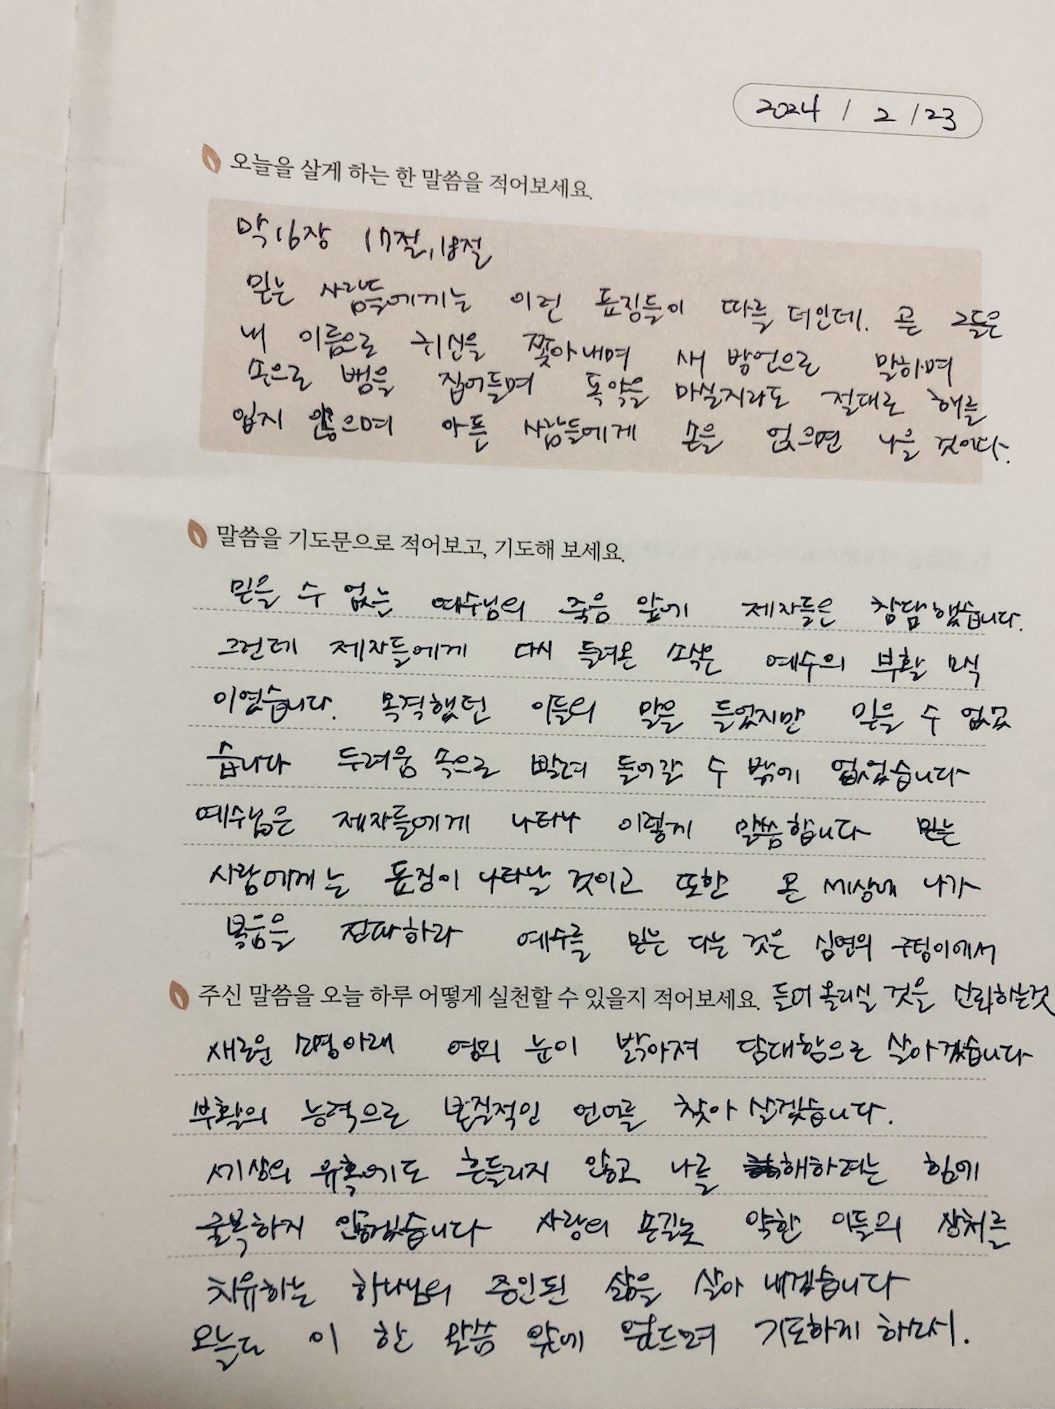 2024 / 2 / 23
오늘을 살게 하는 한 말씀을 적어보세요.
막 16장 17절, 18절
믿는 사람들에게는 이런 표징들이 따를 터인데. 곧 그들은
내 이름으로 귀신을 쫓아내며 새 방언으로 말하며
손으로 뱀을 집어들며 독약을 마실지라도 절대로 해를
입지 않으며 아픈 사람들에게 손을 얹으면 나을 것이다.
말씀을 기도문으로 적어보고, 기도해 보세요.
믿을 수 없는 예수님의 죽음 앞에 제자들은 참담했습니다.
그런데 제자들에게 다시 들려온 소식은 예수의 부활 소식
이였습니다. 목격했던 이들의 말을 들었지만 믿을 수 없었
습니다 두려움 속으로 빨려 들어갈 수 밖에 없었습니다
예수님은 제자들에게 나타나 이렇게 말씀합니다 믿는
사람에게는 표징이 나타날 것이고 또한 온 세상에 나가
복음을 전파하라 예수를 믿는 다는 것은 심연의 구덩이에서
주신 말씀을 오늘 하루 어떻게 실천할 수 있을지 적어보세요. 들어 올리실 것을 신뢰하는것
새로운 소명아래 영의 눈이 밝아져 담대함으로 살아가겠습니다
부활의 능력으로 본질적인 언어를 찾아 살겠습니다.
세상의 유혹에도 흔들리지 않고 나를 해하려는 힘에
굴복하지 않겠습니다 사랑의 손길로 약한 이들의 상처를
치유하는 하나님의 증인된 삶을 살아 내겠습니다
오늘도 이 한 말씀 앞에 엎드려 기도하게 하소서.